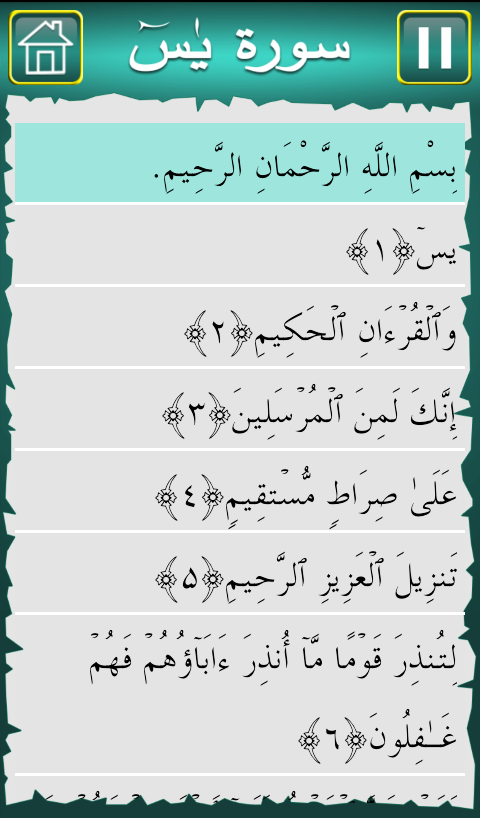 سورة يٰسٓ
بِسْمِ اللَّهِ الرَّحْمَانِ الرَّحِيمِ.
يسٓ﴿١﴾
وَٱلْقُرْءَانِ ٱلْحَكِيمِ﴿٢﴾
إِنَّكَ لَمِنَ ٱلْمُرْسَلِينَ﴿٣﴾
عَلَىٰ صِرَاطٍ مُّسْتَقِيمٍ﴿٤﴾
تَنزِيلَ ٱلْعَزِيزِ ٱلرَّحِيمِ﴿۵﴾
لِتُنذِرَ قَوْمًا مَّآ أُنذِرَ ءَابَآؤُهُمْ فَهُمْ
غَـٰفِلُونَ﴿٦﴾